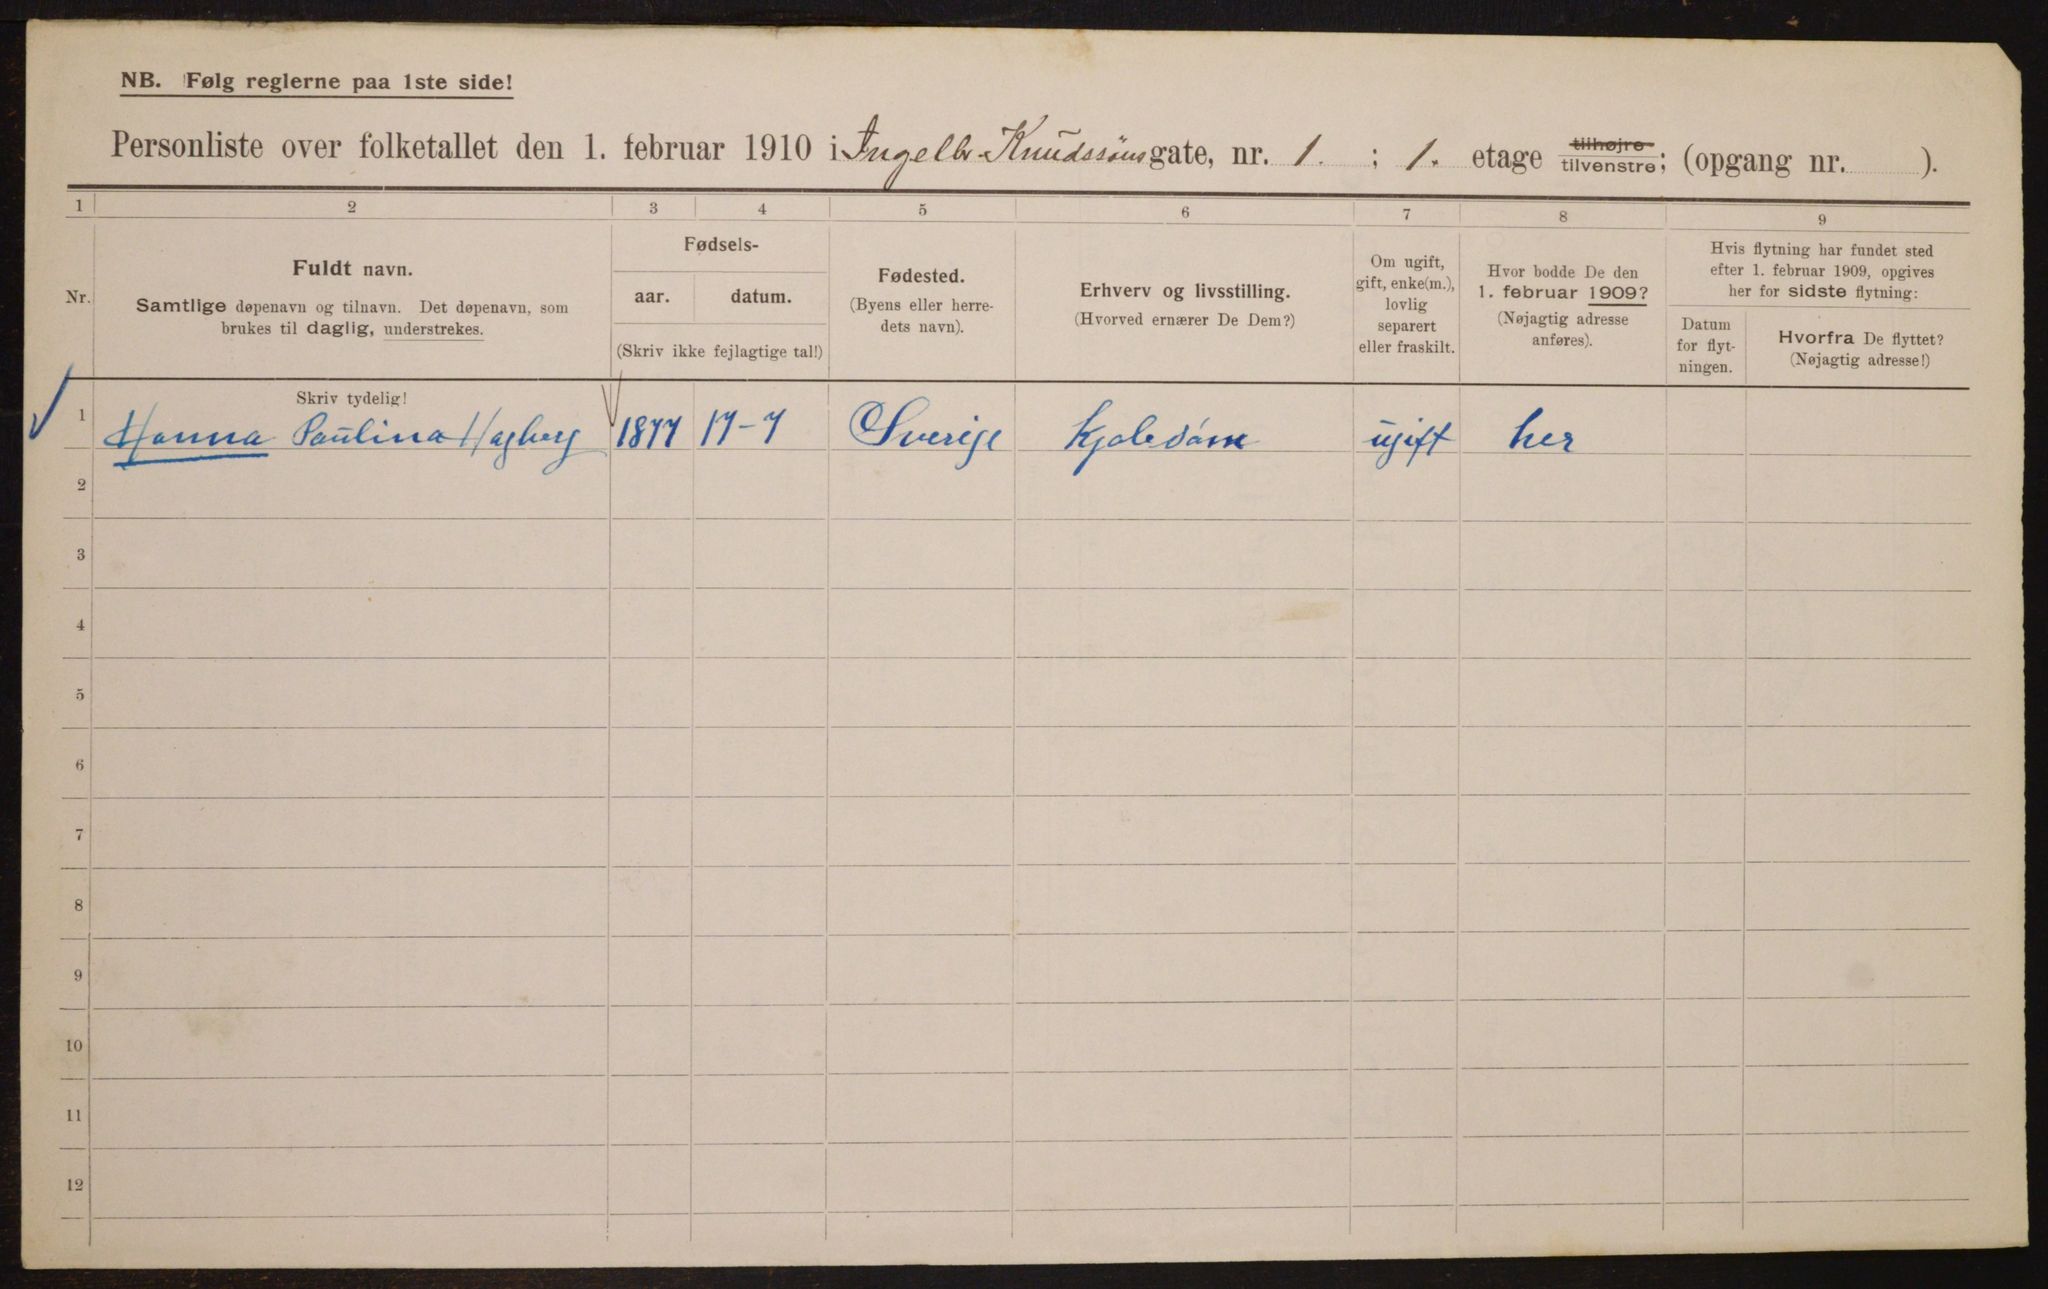 NB. Følg reglerne paa 1ste side!
Personliste over folketallet den 1. februar 1910 i Ingelbr. Knudssøns gate, nr. 1. ; 1. etage tilhøjre tilvenstre; (opgang nr. ).
1 2 3 4 5 6 7 8 9
Nr.
Fuldt navn.
Samtlige døpenavn og tilnavn. Det døpenavn, som
brukes til daglig, understrekes.
Fødsels-
aar. datum.
(Skriv ikke fejlagtige tal!)
Fødested.
(Byens eller herre-
dets navn).
Erhverv og livsstilling.
(Hvorved ernærer De Dem?)
Om ugift,
gift, enke(m.),
lovlig
separert
eller fraskilt.
Hvor bodde De den
1. februar 1909?
(Nøjagtig adresse
anføres).
Hvis flytning har fundet sted
efter 1. februar 1909, opgives
her for sidste flytning:
Datum
for flyt-
ningen.
Hvorfra De flyttet?
(Nøjagtig adresse!)
Skriv tydelig!
1 Hanna Paulina Hagberg 1877 17-7 Sverige Kjolesöm ugift her
2
3
4
5
6
7
8
9
10
11
12